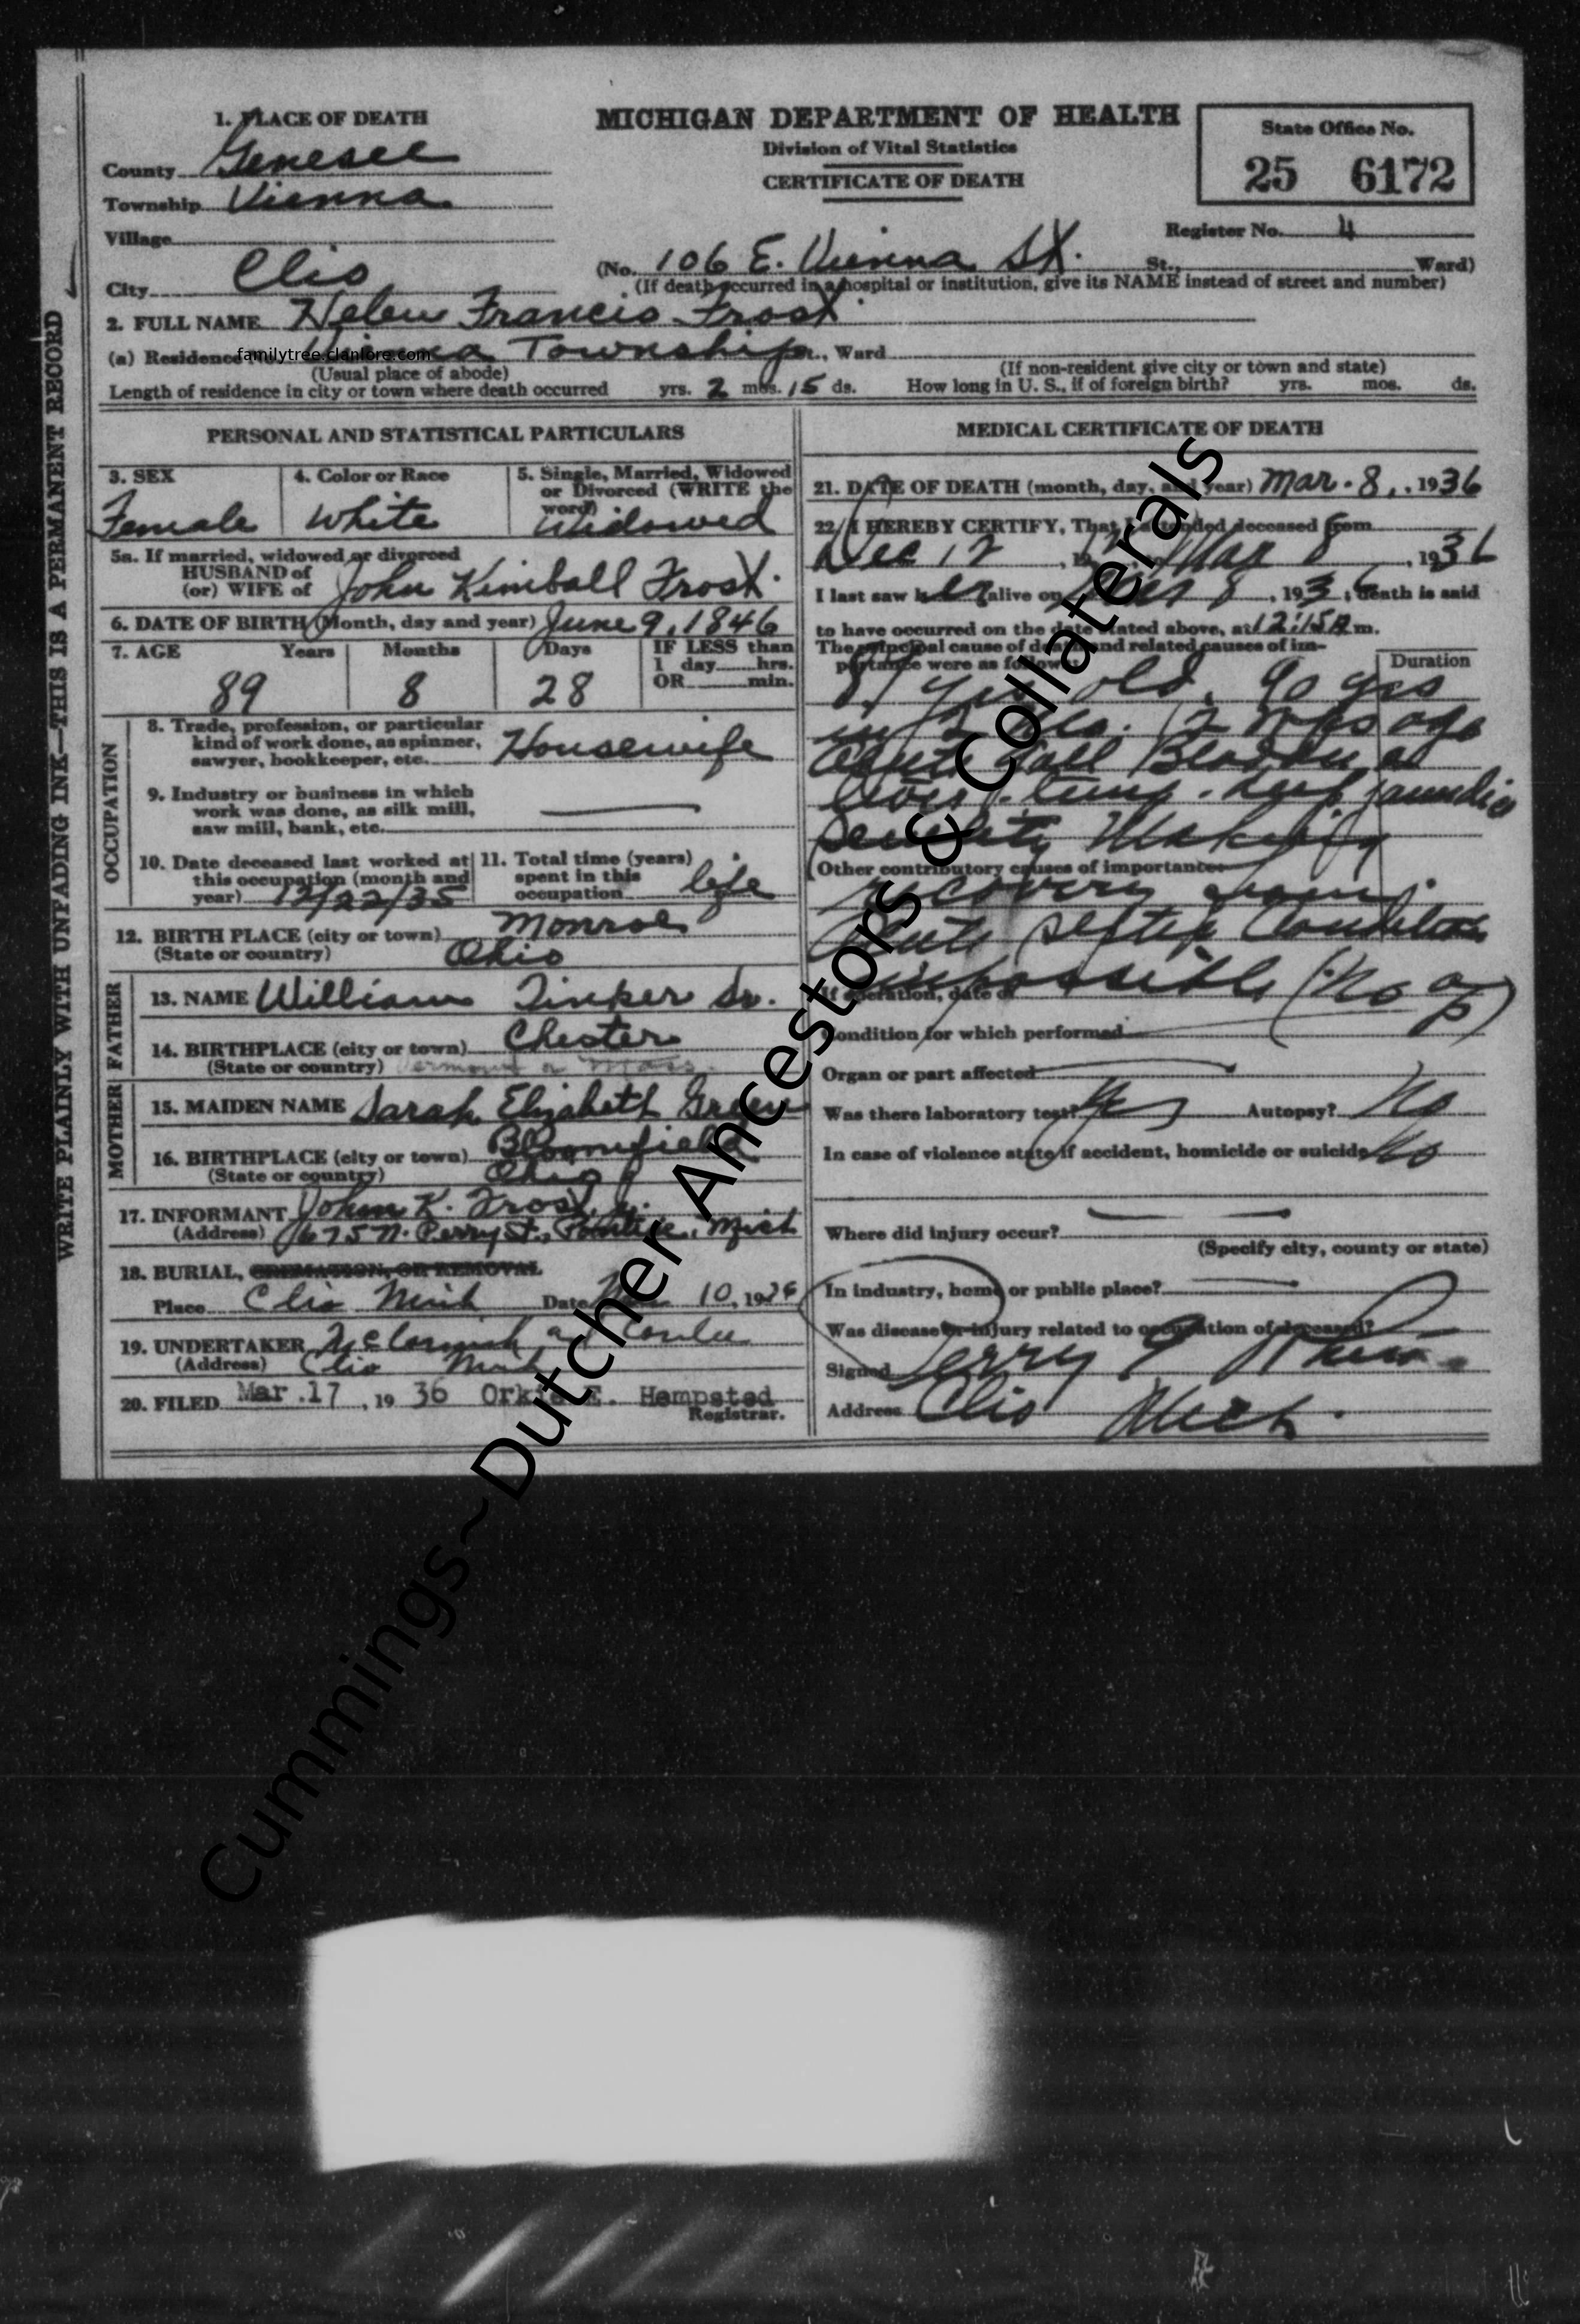 1. PLACE OF DEATH
County Genesee
Township Vienna
Village
City Clio
MICHIGAN DEPARTMENT OF HEALTH
Division of Vital Statistics
CERTIFICATE OF DEATH
State Office No.
25 6172
Register No. 4
(No. 106 E. Vienna St. St., Ward)
(If death occurred in a hospital or institution, give its NAME instead of street and number)
2. FULL NAME Helen Francis Frost
(a) Residence Vienna Township St., Ward
familytree.clanlore.com
(Usual place of abode)
(If non-resident give city or town and state)
Length of residence in city or town where death occurred yrs. 2 mos. 15 ds. How long in U. S., if of foreign birth? yrs. mos. ds.
WRITE PLAINLY WITH UNFADING INK—THIS IS A PERMANENT RECORD
PERSONAL AND STATISTICAL PARTICULARS
3. SEX
Female
4. Color or Race
White
5. Single, Married, Widowed
or Divorced (WRITE the
word)
Widowed
5a. If married, widowed or divorced
HUSBAND of
(or) WIFE of John Kimball Frost
6. DATE OF BIRTH (Month, day and year) June 9, 1846
7. AGE Years Months Days
89 8 28
IF LESS than
1 day hrs.
OR min.
OCCUPATION
8. Trade, profession, or particular
kind of work done, as spinner,
sawyer, bookkeeper, etc. Housewife
9. Industry or business in which
work was done, as silk mill,
saw mill, bank, etc.
10. Date deceased last worked at
this occupation (month and
year) 12/22/35
11. Total time (years)
spent in this
occupation life
12. BIRTH PLACE (city or town) Monroe
(State or country) Ohio
FATHER
13. NAME William Tinker Sr.
14. BIRTHPLACE (city or town) Chester
(State or country) Vermont or Mass.
MOTHER
15. MAIDEN NAME Sarah Elizabeth Green
16. BIRTHPLACE (city or town) Bloomfield
(State or country) Ohio
17. INFORMANT John K. Frost, Jr.
(Address) 675 N. Perry St., Pontiac, Mich
18. BURIAL, CREMATION, OR REMOVAL
Place Clio Mich Date Mar 10, 1936
19. UNDERTAKER McCormick
(Address) Clio Mich
20. FILED Mar. 17, 19 36 E. Hempsted
Registrar.
MEDICAL CERTIFICATE OF DEATH
21. DATE OF DEATH (month, day, and year) Mar. 8, 1936
22. I HEREBY CERTIFY, That I attended deceased from
Dec 12 Mar 8, 1936
I last saw her alive on 8, 1936; death is said
to have occurred on the date stated above, at 12:15A m.
The principal cause of death and related causes of im-
portance were as follows:
Duration
yrs old. 90 yrs
in 2 mo. 12 ago
Acute Gall Bladder
temp. jaundice
Senility Making
Other contributory causes of importance
recovery from
Acute septic condition
impossible (No op)
If operation, date of
Condition for which performed
Organ or part affected
Was there laboratory test? Yes Autopsy? No
In case of violence state if accident, homicide or suicide No
Where did injury occur?
(Specify city, county or state)
In industry, home or public place?
Was disease or injury related to occupation of deceased?
Signed
Address Clio Mich.
Cummings~Dutcher Ancestors & Collaterals